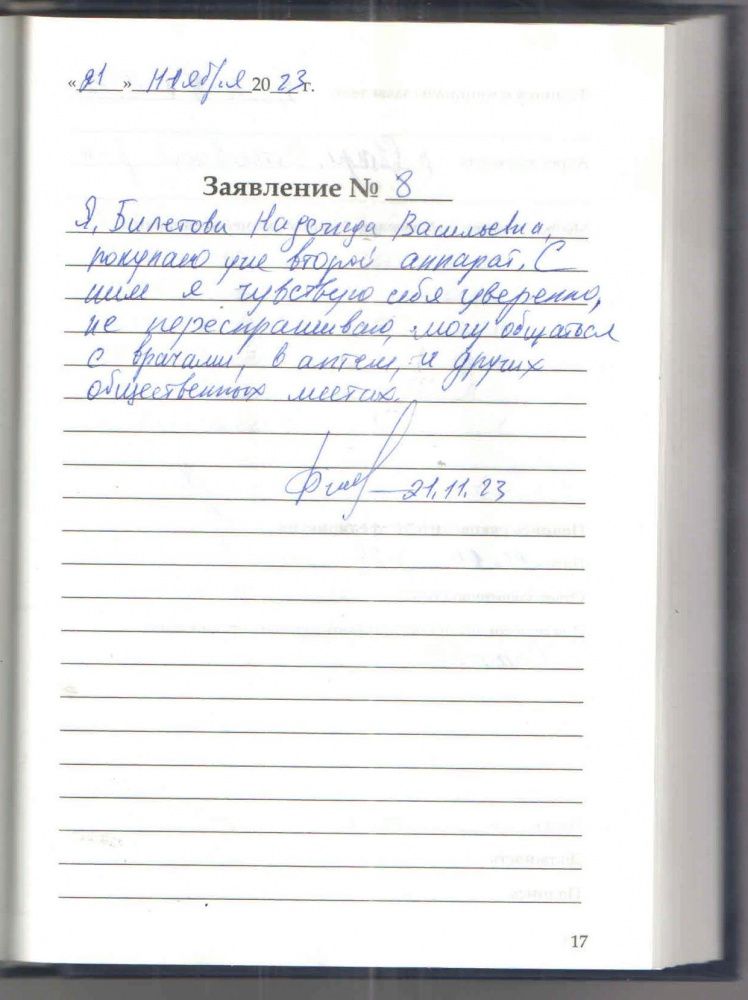 «21» ноября 2023 г.
Заявление № 8
Я, Билетова Надежда Васильевна,
покупаю уже второй аппарат. С
ним я чувствую себя уверенно,
не переспрашиваю, могу общаться
с врачами, в аптеке, и других
общественных местах.
21.11.23
17